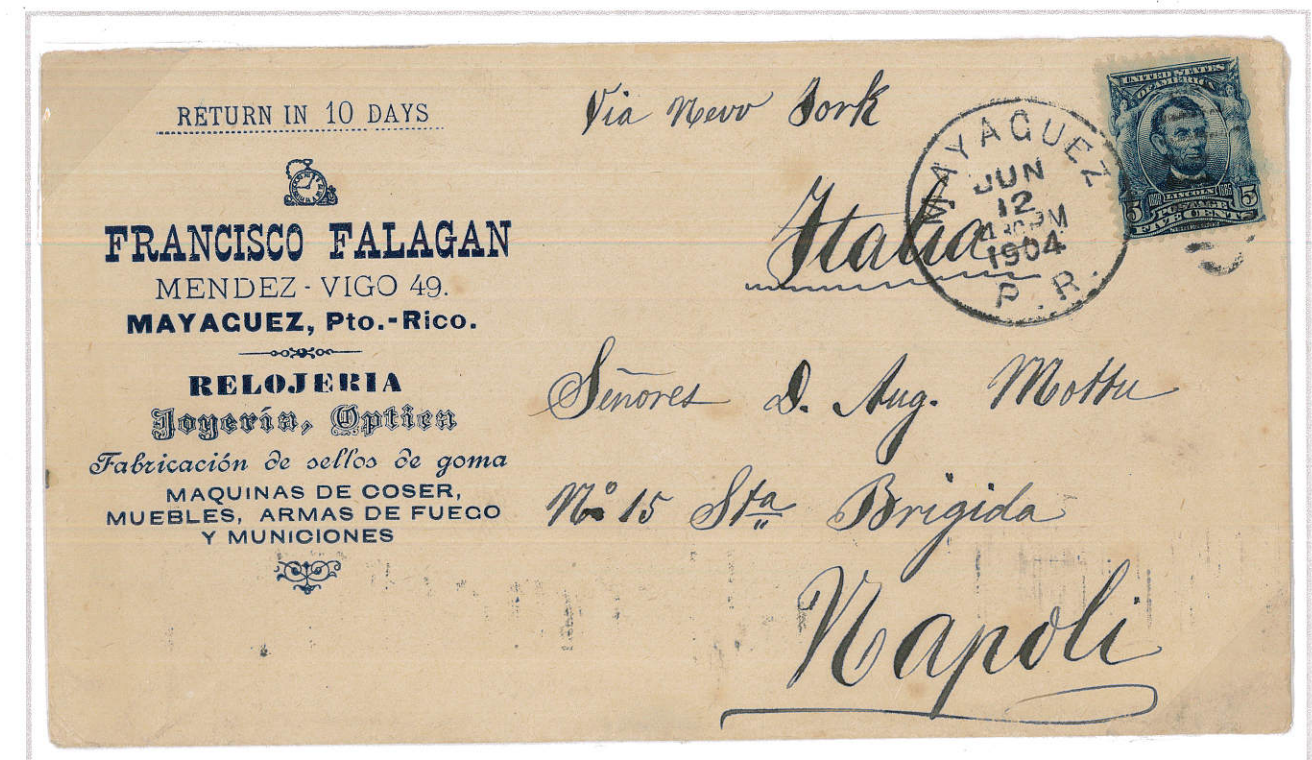 RETURN IN 10 DAYS
FRANCISCO FALAGAN
MENDEZ-VIGO 49.
MAYAGUEZ, Pto.-Rico.
RELOJERIA
Joyería, Optica
Fabricación de sellos de goma
MAQUINAS DE COSER,
MUEBLES, ARMAS DE FUEGO
Y MUNICIONES
Via New York
Italia
MAYAGUEZ
JUN
12
4 30 PM
1904
P.R.
UNITED STATES
OF AMERICA
1809 LINCOLN 1865
5 POSTAGE 5
FIVE CENTS
Señores D. Aug. Mottu
No 15 Sta Brigida
Napoli